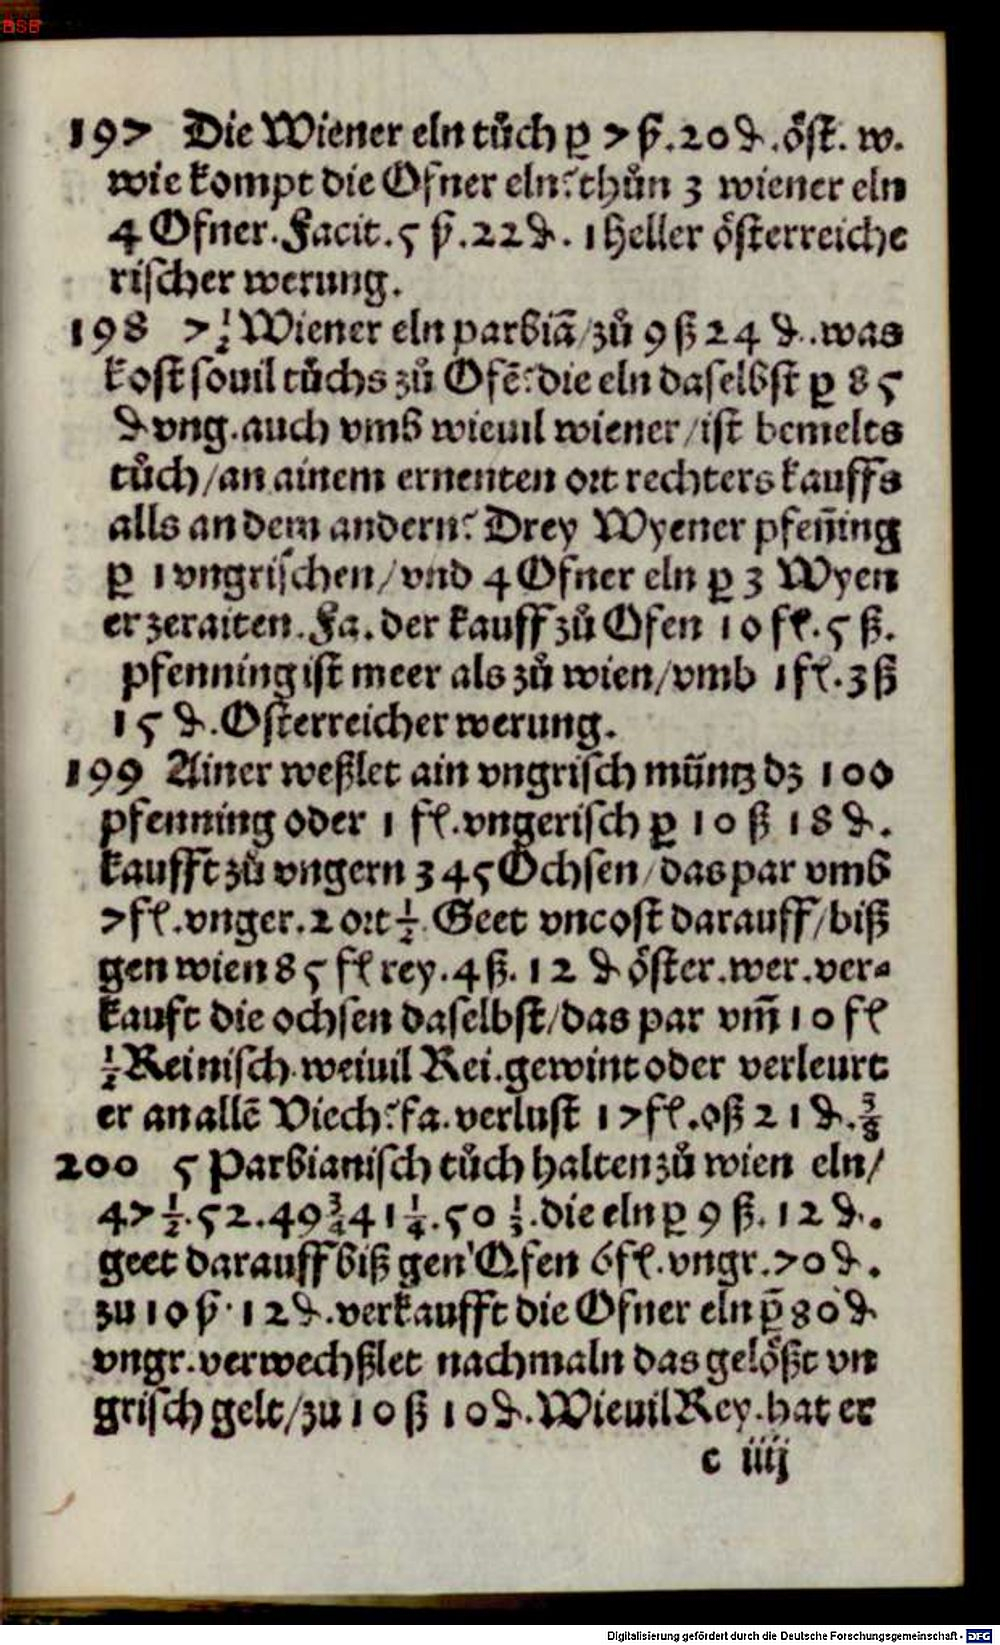 BSB
197 Die Wiener eln tůch ꝑ 7 ß.20 ₰.öst. w.
wie kompt die Ofner eln? thůn 3 wiener eln
4 Ofner. Facit. 5 ß.22 ₰. 1 heller österreiche
rischer werung.
198 7 1/2 Wiener eln parbiã/zů 9 ß 24 ₰..was
kost souil tůchs zů Ofẽ? die eln daselbst ꝑ 85
₰ vng. auch vmb wieuil wiener/ist bemelts
tůch/an ainem ernenten ort rechters kauffs
alls an dem andern? Drey Wyener pfeñing
ꝑ 1 vngrischen/vnd 4 Ofner eln ꝑ 3 Wyen
er zeraiten. Fa. der kauff zů Ofen 10 fl. 5 ß.
pfenning ist meer als zů wien/vmb 1 fl. 3 ß
15 ₰. Osterreicher werung.
199 Ainer weßlet ain vngrisch müntz dz 100
pfenning oder 1 fl. vngerisch ꝑ 10 ß 18 ₰.
kaufft zů vngern 345 Ochsen/das par vmb
7 fl. vnger. 2 ort 1/2. Geet vncost darauff/biß
gen wien 85 fl rey. 4 ß. 12 ₰ öster. wer. ver-
kauft die ochsen daselbst/das par vm̃ 10 fl
1/2 Reinisch. weiuil Rei. gewint oder verleurt
er an allẽ Viech? fa. verlust 17 fl. 0 ß 21 ₰. 3/8
200 5 Parbianisch tůch halten zů wien eln/
47 1/2. 52. 49 3/4 41 1/4. 50 1/3. die eln ꝑ 9 ß. 12 ₰.
geet darauff biß gen Ofen 6 fl. vngr. 70 ₰.
zu 10 ß. 12 ₰. verkaufft die Ofner eln ꝑ 80 ₰
vngr. verwechßlet nachmaln das gelößt vn
grisch gelt/zu 10 ß 10 ₰. Wieuil Rey. hat er
c iiij
Digitalisierung gefördert durch die Deutsche Forschungsgemeinschaft - DFG